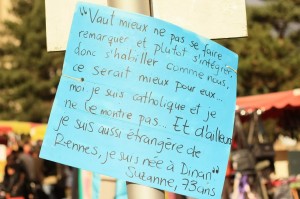 "Vaut mieux ne pas se faire
remarquer et plutôt s'intégrer,
donc s'habiller comme nous,
ce serait mieux pour eux...
moi je suis catholique et je
ne le montre pas... Et d'ailleurs
je suis aussi étrangère de
Rennes, je suis née à Dinan"
Suzanne, 73 ans